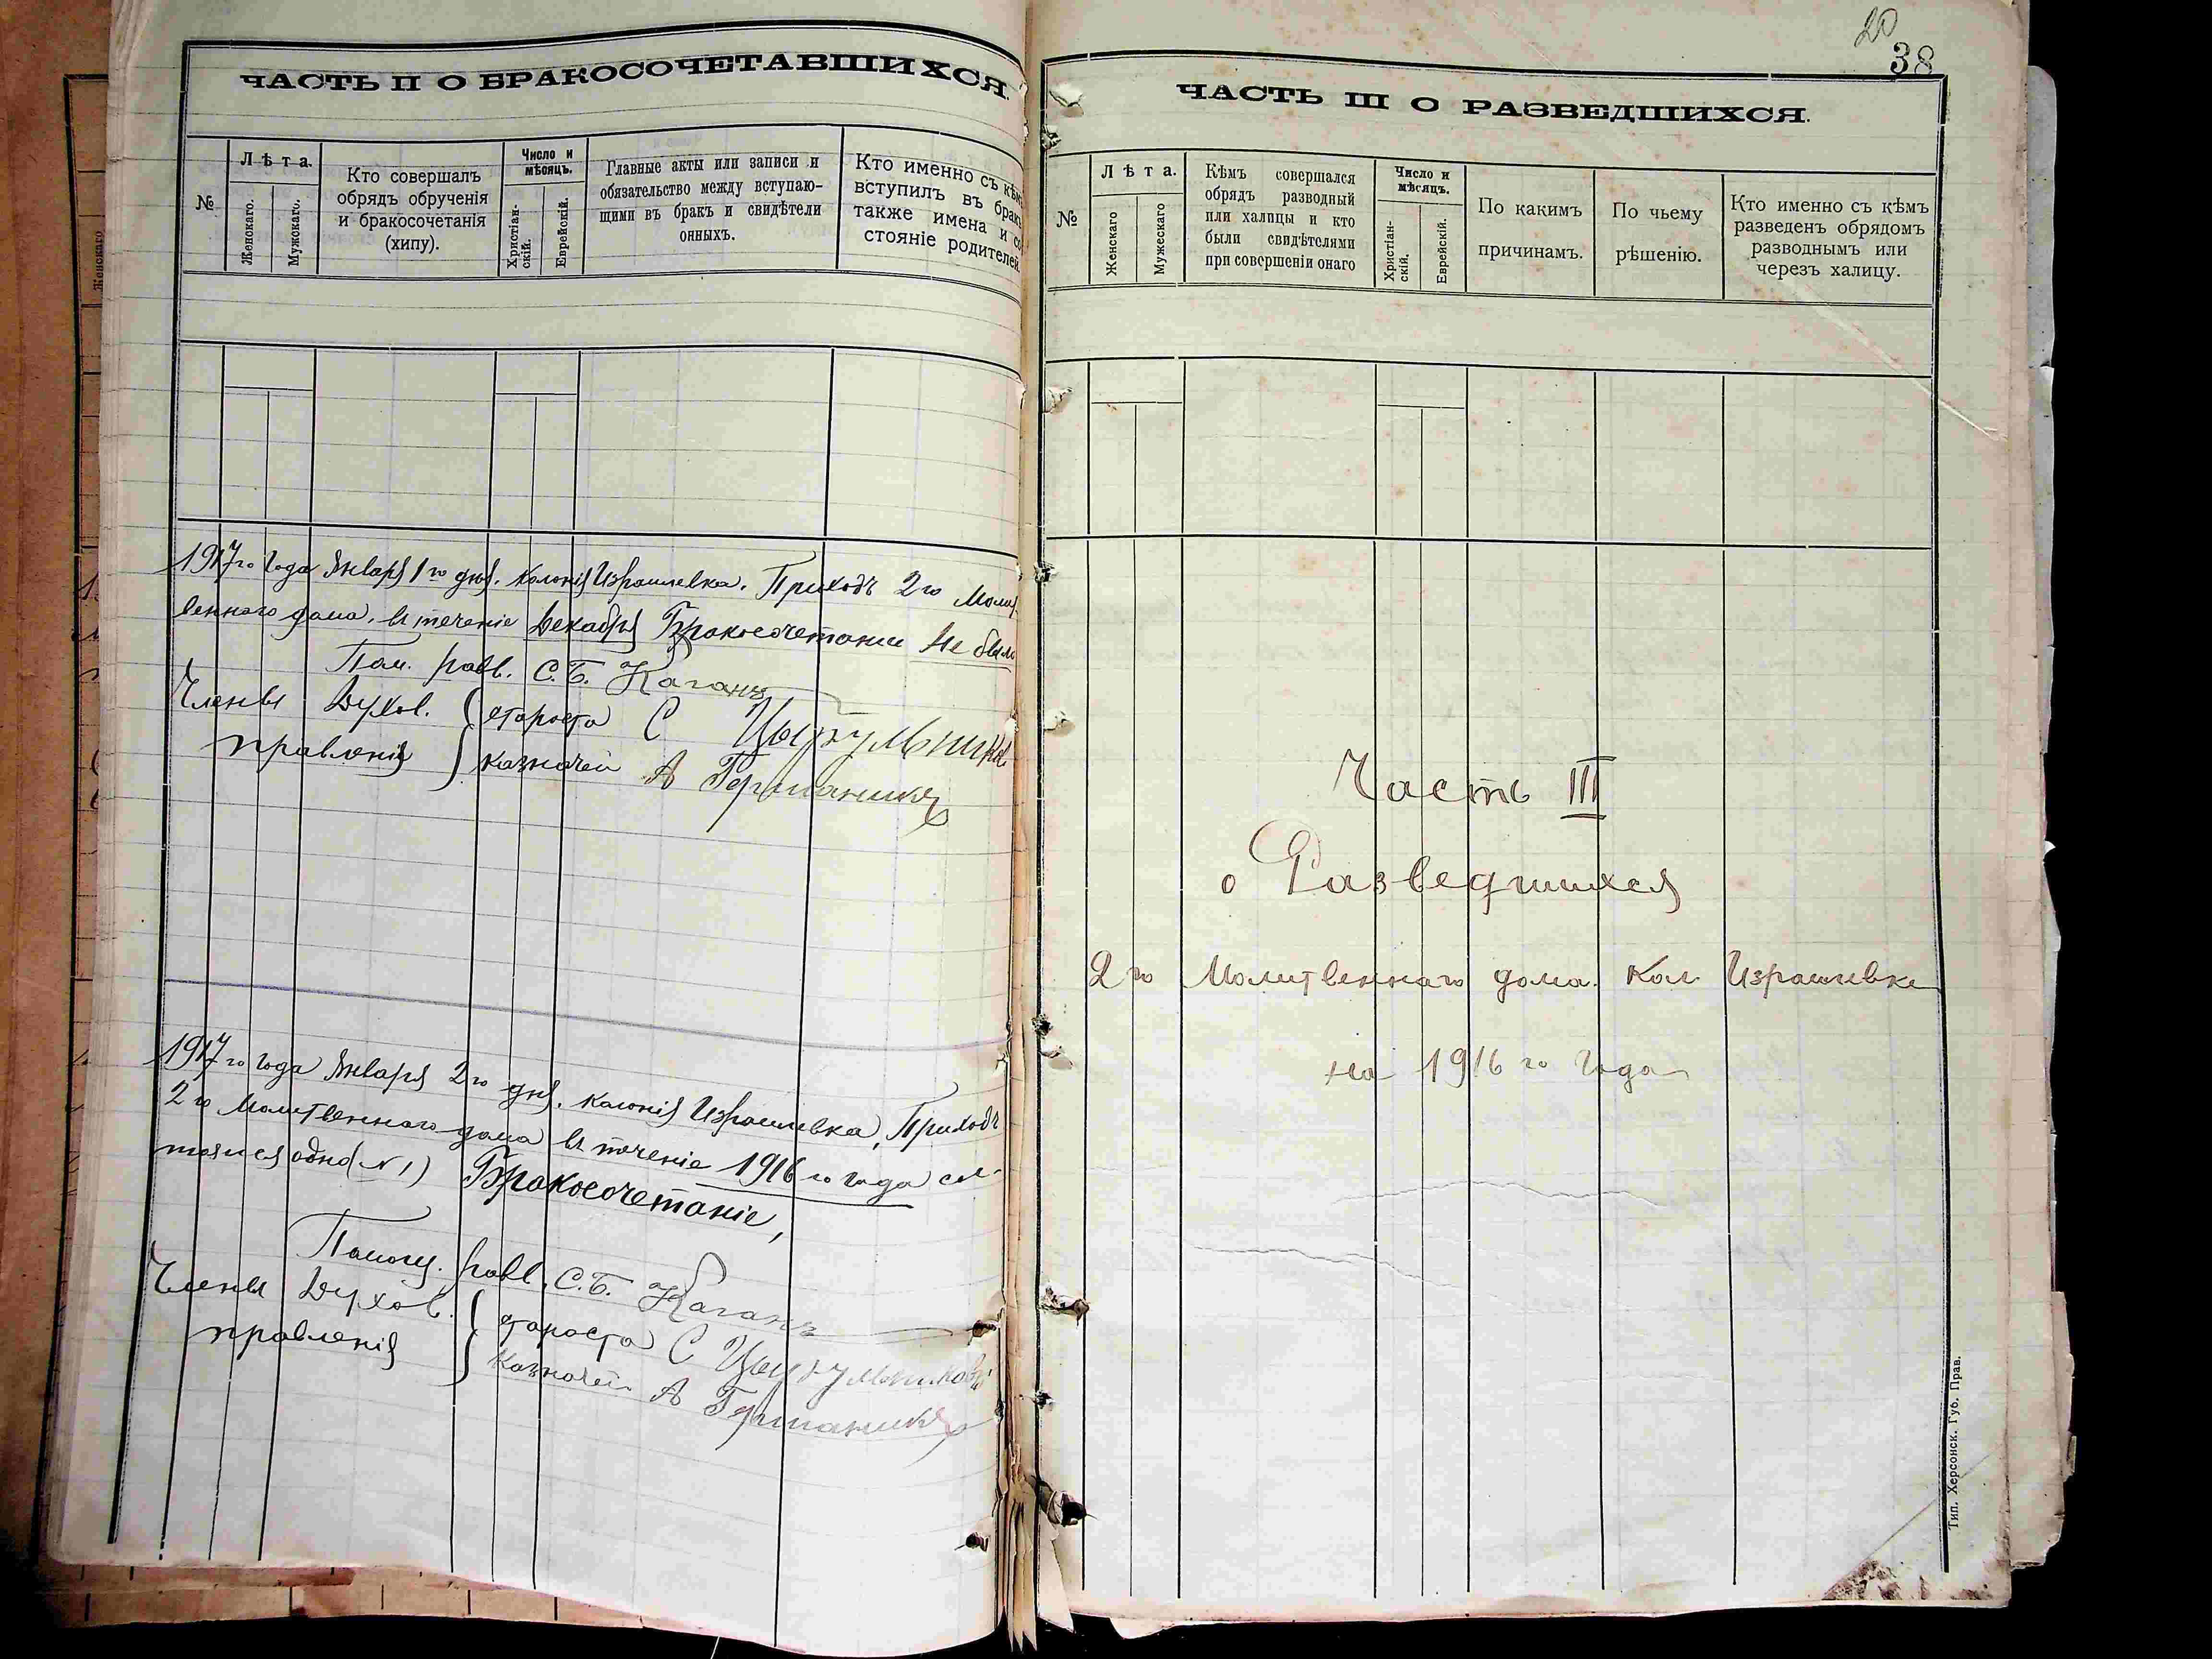 ЧАСТЬ II О БРАКОСОЧЕТАВШИХСЯ.
№
Лѣта.
Женскаго.
Мужскаго.
Кто совершалъ
обрядъ обрученія
и бракосочетанія
(хипу).
Число и
мѣсяцъ.
Христіан-
скій.
Еврейскій.
Главные акты или записи и
обязательство между вступаю-
щими въ бракъ и свидѣтели
онныхъ.
Кто именно съ кѣмъ
вступилъ въ бракъ
также имена и со
стояніе родителей.
1917го Года Января 1го дня. Колонія Израилевка. Приходъ 2го Молит
веннаго дома. въ теченіе Декабря Бракосочетании не было
Пом. равв. С.Б. Каганъ
Члены Духов. староста С
правленія казначей А
1917го года Января 2го дня. Колонія Израилевка, Приходъ
2го Молитвеннаго дома въ теченіе 1916го года сос-
тоялся одно (№1) Бракосочетаніе,
Помощ. равв. С.Б. Каганъ
Члены Духов. староста С
правленія Казначей А
20
38
ЧАСТЬ III О РАЗВЕДШИХСЯ.
№
Лѣта.
Женскаго
Мужескаго
Кѣмъ совершался
обрядъ разводный
или халицы и кто
были свидѣтелями
при совершеніи онаго
Число и
мѣсяцъ.
Христіан-
скій.
Еврейскій.
По какимъ
причинамъ.
По чьему
рѣшенію.
Кто именно съ кѣмъ
разведенъ обрядомъ
разводнымъ или
черезъ халицу.
Часть III
о Разведшихся
2го Молитвеннаго дома. Кол Израилевке
на 1916го Года
Тип. Херсонск. Губ. Прав.